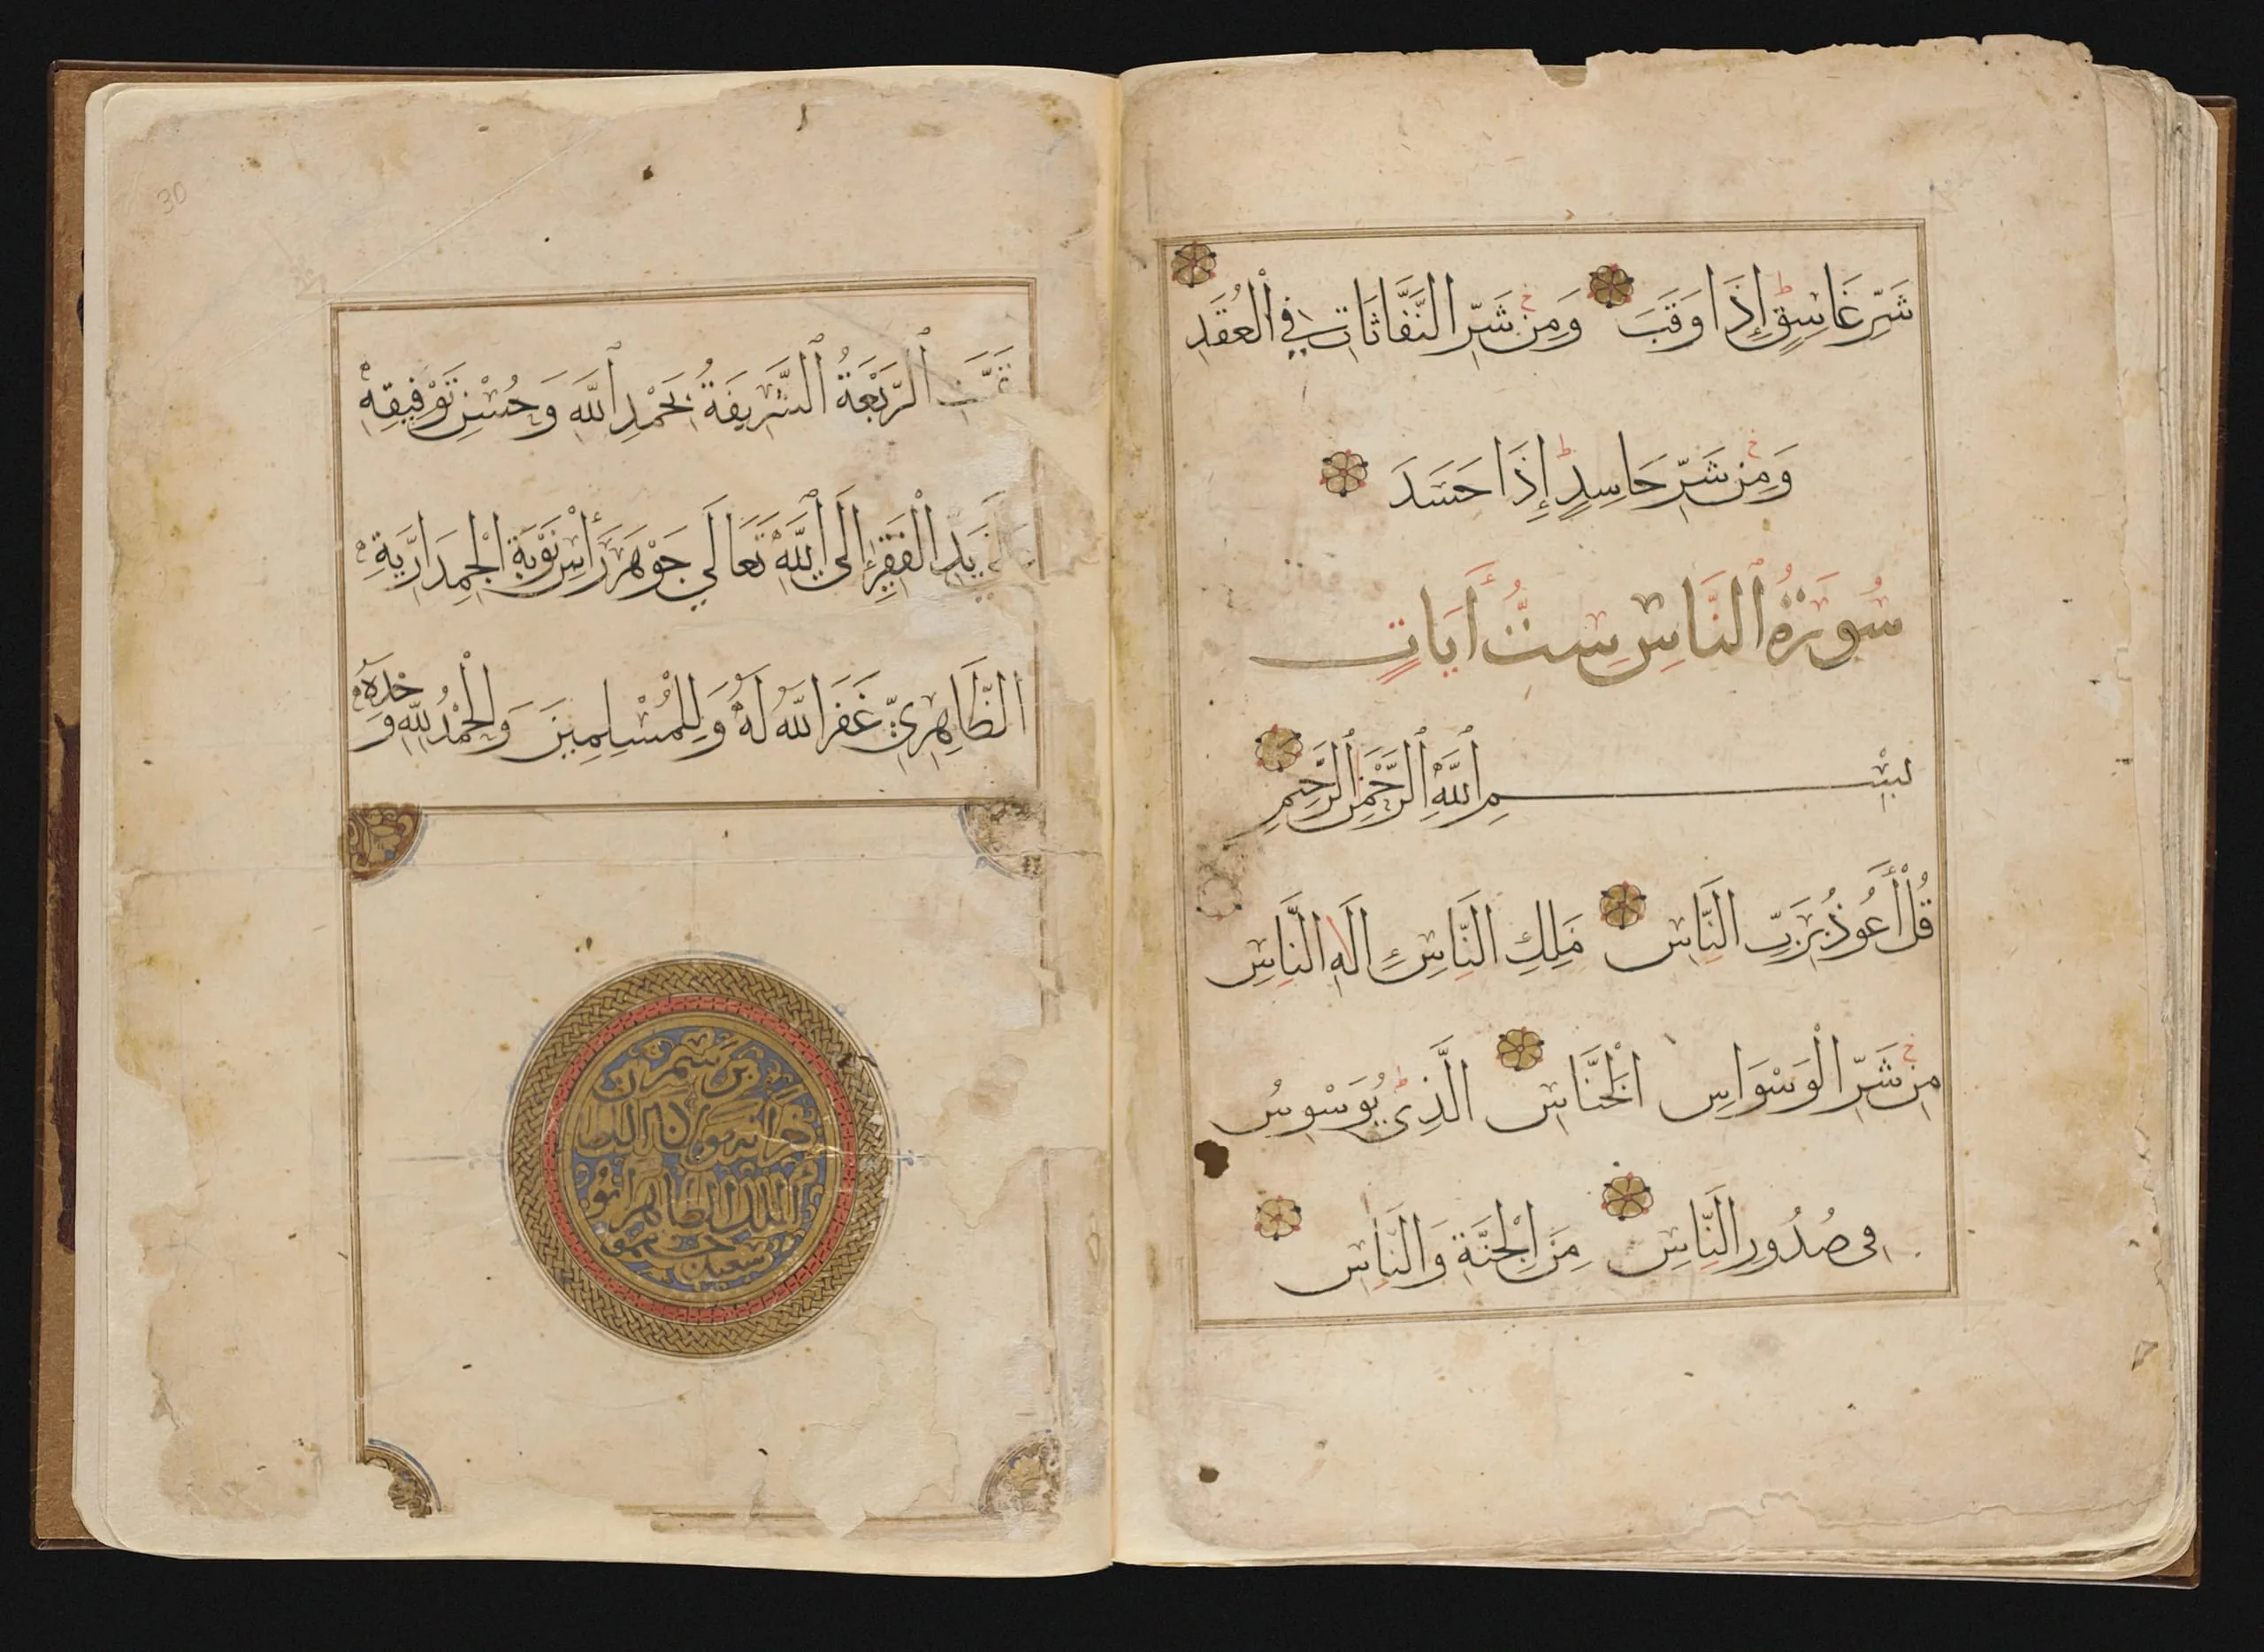 شَرِّ غَاسِقٍ إِذَا وَقَبَ وَمِن شَرِّ النَّفَّاثَاتِ فِي الْعُقَدِ
وَمِن شَرِّ حَاسِدٍ إِذَا حَسَدَ
سُورَةُ النَّاسِ سِتُّ أَيَاتٍ
بِسْمِ اللَّهِ الرَّحْمَنِ الرَّحِيمِ
قُلْ أَعُوذُ بِرَبِّ النَّاسِ مَلِكِ النَّاسِ إِلَهِ النَّاسِ
مِن شَرِّ الْوَسْوَاسِ الْخَنَّاسِ الَّذِى يُوَسْوِسُ
فِى صُدُورِ النَّاسِ مِنَ الْجِنَّةِ وَالنَّاسِ
30
تَمَّت الرَّبْعَةُ الشَّرِيفَةُ بِحَمْدِ اللَّهِ وَحُسْنِ تَوْفِيقِهِ
يَدِ الْفَقِيرِ إِلَى اللَّهِ تَعَالَي جَوْهَر رَأْسِ نَوْبَةِ الْجَمَدَارِيَّةِ
الظَّاهِرِيِّ غَفَرَ اللَّهُ لَهُ وَلِلْمُسْلِمِينَ وَالْحَمْدُ لِلَّهِ وَحْدَهُ